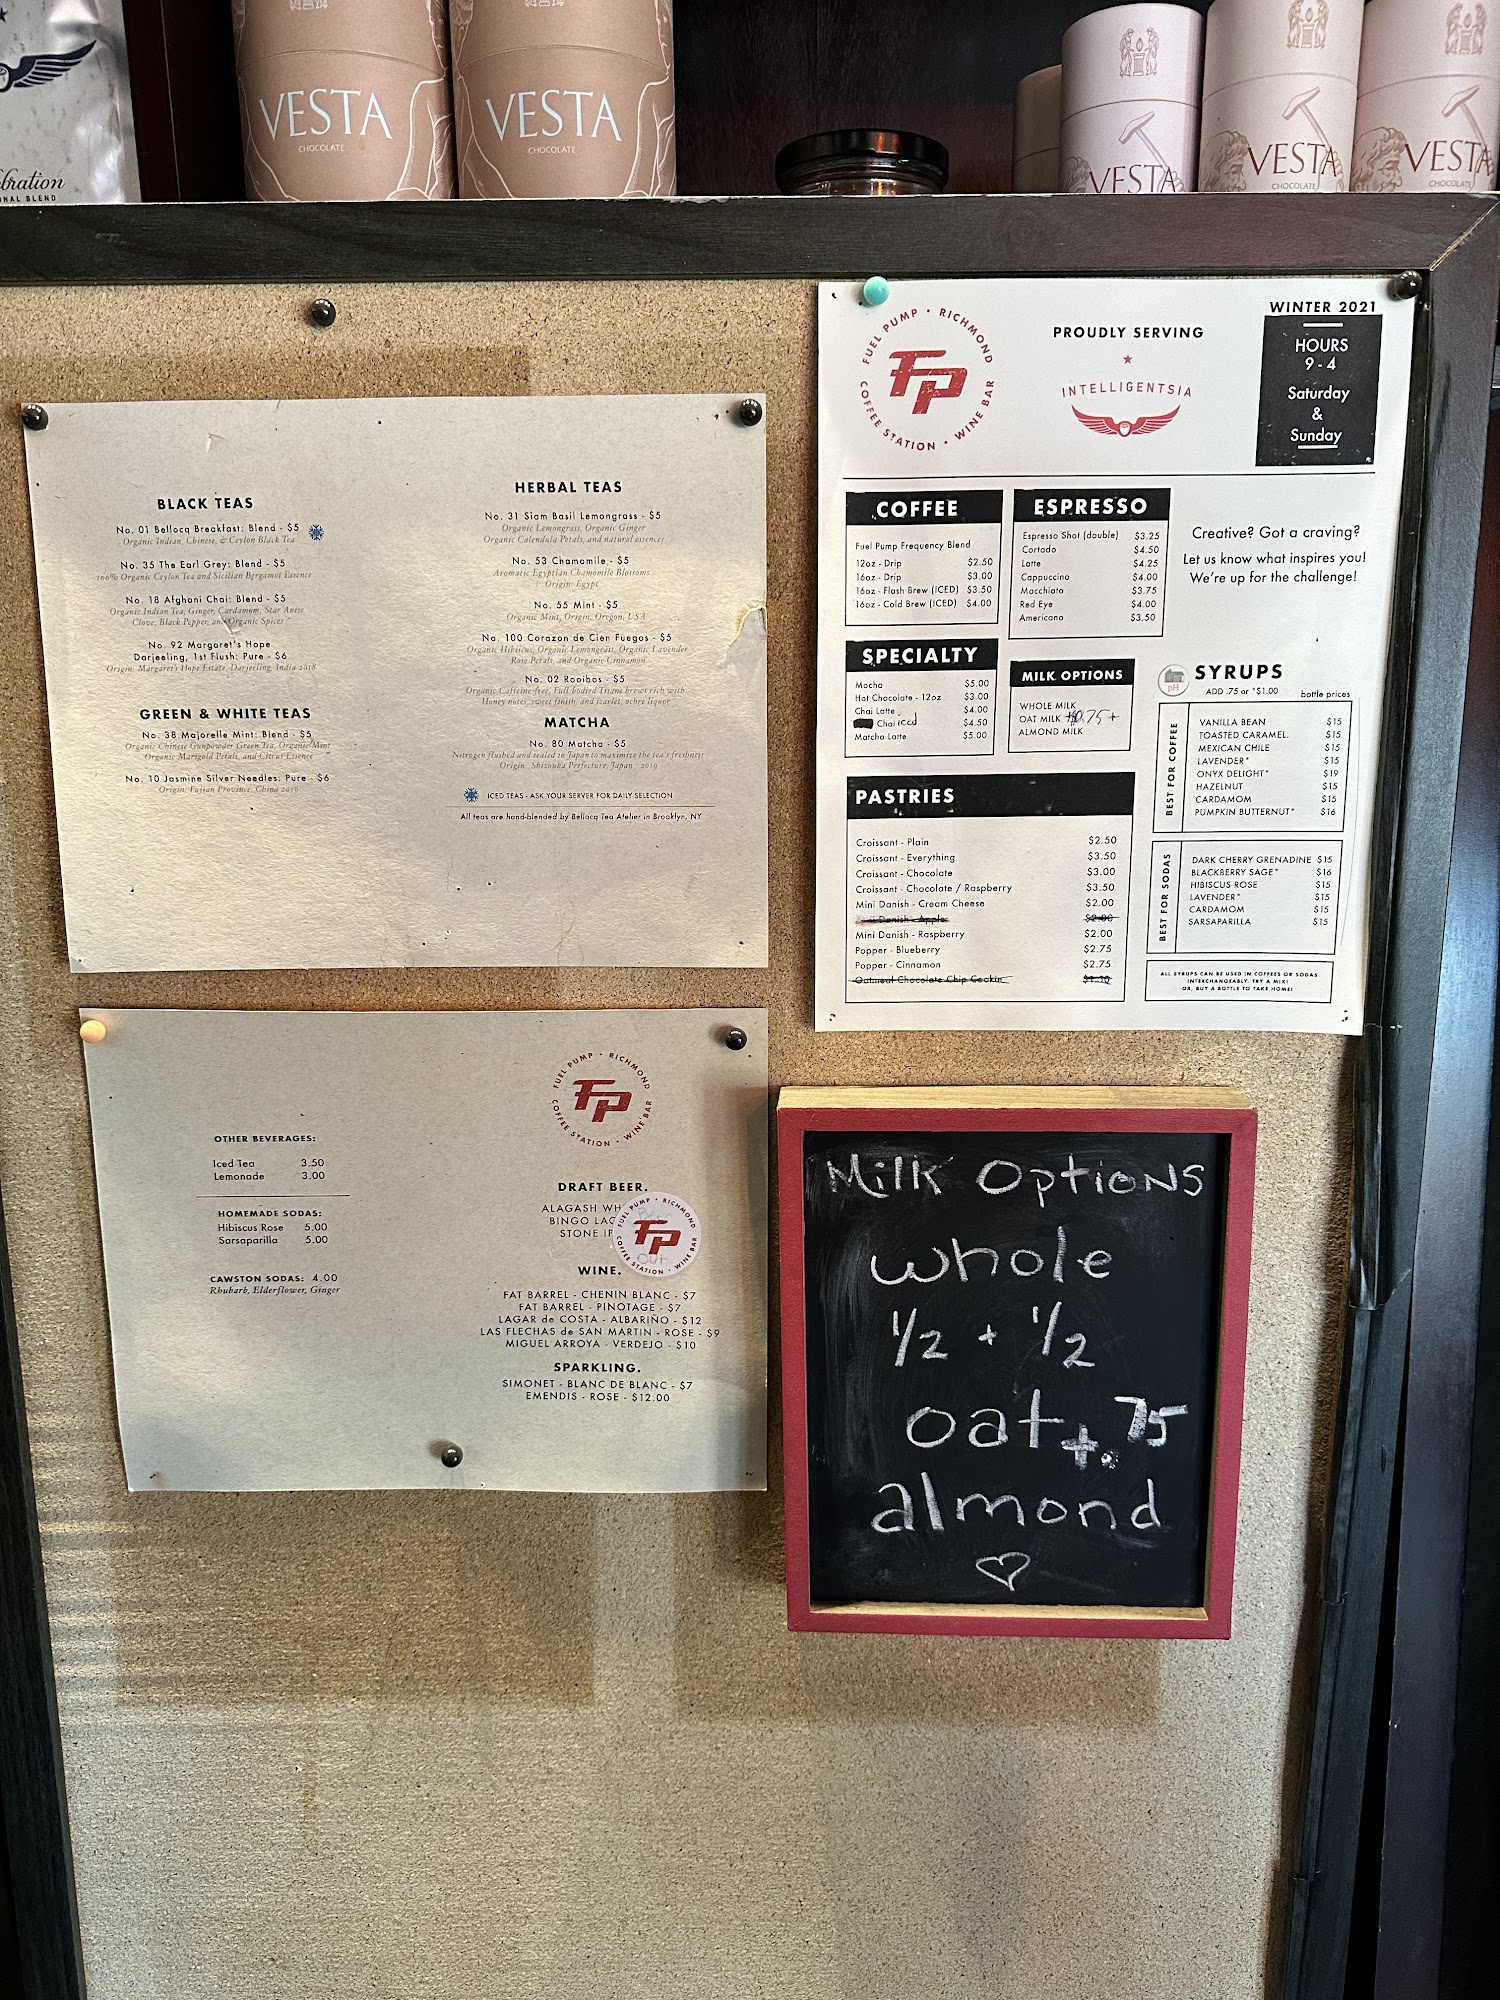 VESTA
CHOCOLATE
VESTA
CHOCOLATE
VESTA
VESTA
CHOCOLATE
VESTA
CHOCOLATE
BLACK TEAS
No. 01 Bellocq Breakfast: Blend - $5
Organic Indian, Chinese, & Ceylon Black Tea
No. 35 The Earl Grey: Blend - $5
100% Organic Ceylon Tea and Sicilian Bergamot Essence
No. 18 Afghani Chai: Blend - $5
Organic Indian Tea, Ginger, Cardamom, Star Anise
Clove, Black Pepper, and Organic Spices
No. 92 Margaret's Hope
Darjeeling, 1st Flush: Pure - $6
Origin: Margaret's Hope Estate, Darjeeling, India 2018
GREEN & WHITE TEAS
No. 38 Majorelle Mint: Blend - $5
Organic Chinese Gunpowder Green Tea, Organic Mint
Organic Marigold Petals, and Citrus Essence
No. 10 Jasmine Silver Needles: Pure - $6
Origin: Fujian Province, China 2016
HERBAL TEAS
No. 31 Siam Basil Lemongrass - $5
Organic Lemongrass, Organic Ginger
Organic Calendula Petals, and natural essences
No. 53 Chamomile - $5
Aromatic Egyptian Chamomile Blossoms
Origin: Egypt
No. 55 Mint - $5
Organic Mint, Origin: Oregon, USA
No. 100 Corazon de Cien Fuegos - $5
Organic Hibiscus, Organic Lemongrass, Organic Lavender
Rose Petals, and Organic Cinnamon
No. 02 Rooibos - $5
Organic Caffeine-free, Full bodied Tisane brews rich with
Honey notes, sweet finish, and scarlet, ochre liquor
MATCHA
No. 80 Matcha - $5
Nitrogen flushed and sealed in Japan to maximize the tea's freshness
Origin: Shizouka Prefecture, Japan 2019
ICED TEAS - ASK YOUR SERVER FOR DAILY SELECTION
All teas are hand-blended by Bellocq Tea Atelier in Brooklyn, NY
FUEL PUMP • RICHMOND
FP
COFFEE STATION • WINE BAR
PROUDLY SERVING
INTELLIGENTSIA
WINTER 2021
HOURS
9 - 4
Saturday
&
Sunday
COFFEE
Fuel Pump Frequency Blend
12oz - Drip $2.50
16oz - Drip $3.00
16oz - Flash Brew (ICED) $3.50
16oz - Cold Brew (ICED) $4.00
ESPRESSO
Espresso Shot (double) $3.25
Cortado $4.50
Latte $4.25
Cappuccino $4.00
Macchiato $3.75
Red Eye $4.00
Americano $3.50
Creative? Got a craving?
Let us know what inspires you!
We're up for the challenge!
SPECIALTY
Mocha $5.00
Hot Chocolate - 12oz $3.00
Chai Latte $4.00
Chai iced $4.50
Matcha Latte $5.00
MILK OPTIONS
WHOLE MILK
OAT MILK 0.75+
ALMOND MILK
pH
SYRUPS
ADD .75 or *$1.00 bottle prices
BEST FOR COFFEE
VANILLA BEAN $15
TOASTED CARAMEL $15
MEXICAN CHILE $15
LAVENDER* $15
ONYX DELIGHT* $19
HAZELNUT $15
CARDAMOM $15
PUMPKIN BUTTERNUT* $16
BEST FOR SODAS
DARK CHERRY GRENADINE $15
BLACKBERRY SAGE* $16
HIBISCUS ROSE $15
LAVENDER* $15
CARDAMOM $15
SARSAPARILLA $15
ALL SYRUPS CAN BE USED IN COFFEES OR SODAS
INTERCHANGEABLY. TRY A MIX!
OR, BUY A BOTTLE TO TAKE HOME!
PASTRIES
Croissant - Plain $2.50
Croissant - Everything $3.50
Croissant - Chocolate $3.00
Croissant - Chocolate / Raspberry $3.50
Mini Danish - Cream Cheese $2.00
Mini Danish - Apple $2.00
Mini Danish - Raspberry $2.00
Popper - Blueberry $2.75
Popper - Cinnamon $2.75
Oatmeal Chocolate Chip Cookin
OTHER BEVERAGES:
Iced Tea 3.50
Lemonade 3.00
HOMEMADE SODAS:
Hibiscus Rose 5.00
Sarsaparilla 5.00
CAWSTON SODAS: 4.00
Rhubarb, Elderflower, Ginger
FUEL PUMP • RICHMOND
FP
COFFEE STATION • WINE BAR
DRAFT BEER.
ALAGASH WH
BINGO LAG
STONE IP
FUEL PUMP • RICHMOND
FP
COFFEE STATION • WINE BAR
OUT
WINE.
FAT BARREL - CHENIN BLANC - $7
FAT BARREL - PINOTAGE - $7
LAGAR de COSTA - ALBARIÑO - $12
LAS FLECHAS de SAN MARTIN - ROSE - $9
MIGUEL ARROYA - VERDEJO - $10
SPARKLING.
SIMONET - BLANC DE BLANC - $7
EMENDIS - ROSE - $12.00
Milk Options
whole
1/2 + 1/2
oat +.75
almond